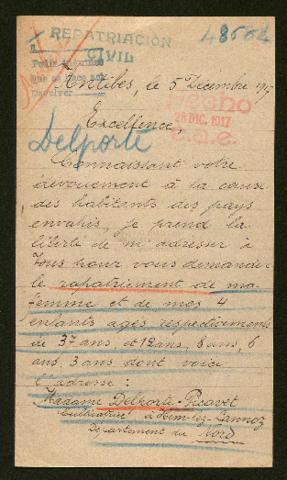 REPATRIACIÓN
CIVIL
48564
Antibes, le 5 Décembre 1917
HECHO
28 DIC. 1917
Excellence,
Delporte
Connaissant votre
dévouement à la cause
des habitants des pays
envahis, je prend la
liberté de m'adresser à
Vous pour vous demander
le rapatriement de ma
femme et de mes 4
enfants agés respectivements
de 37 ans, et 12 ans, 8 ans, 6
ans, 3 ans dont voici
l'adresse :
Madame Delporte-Picavet
Cultivatrice à Hem-lez-Lannoy
Département du Nord